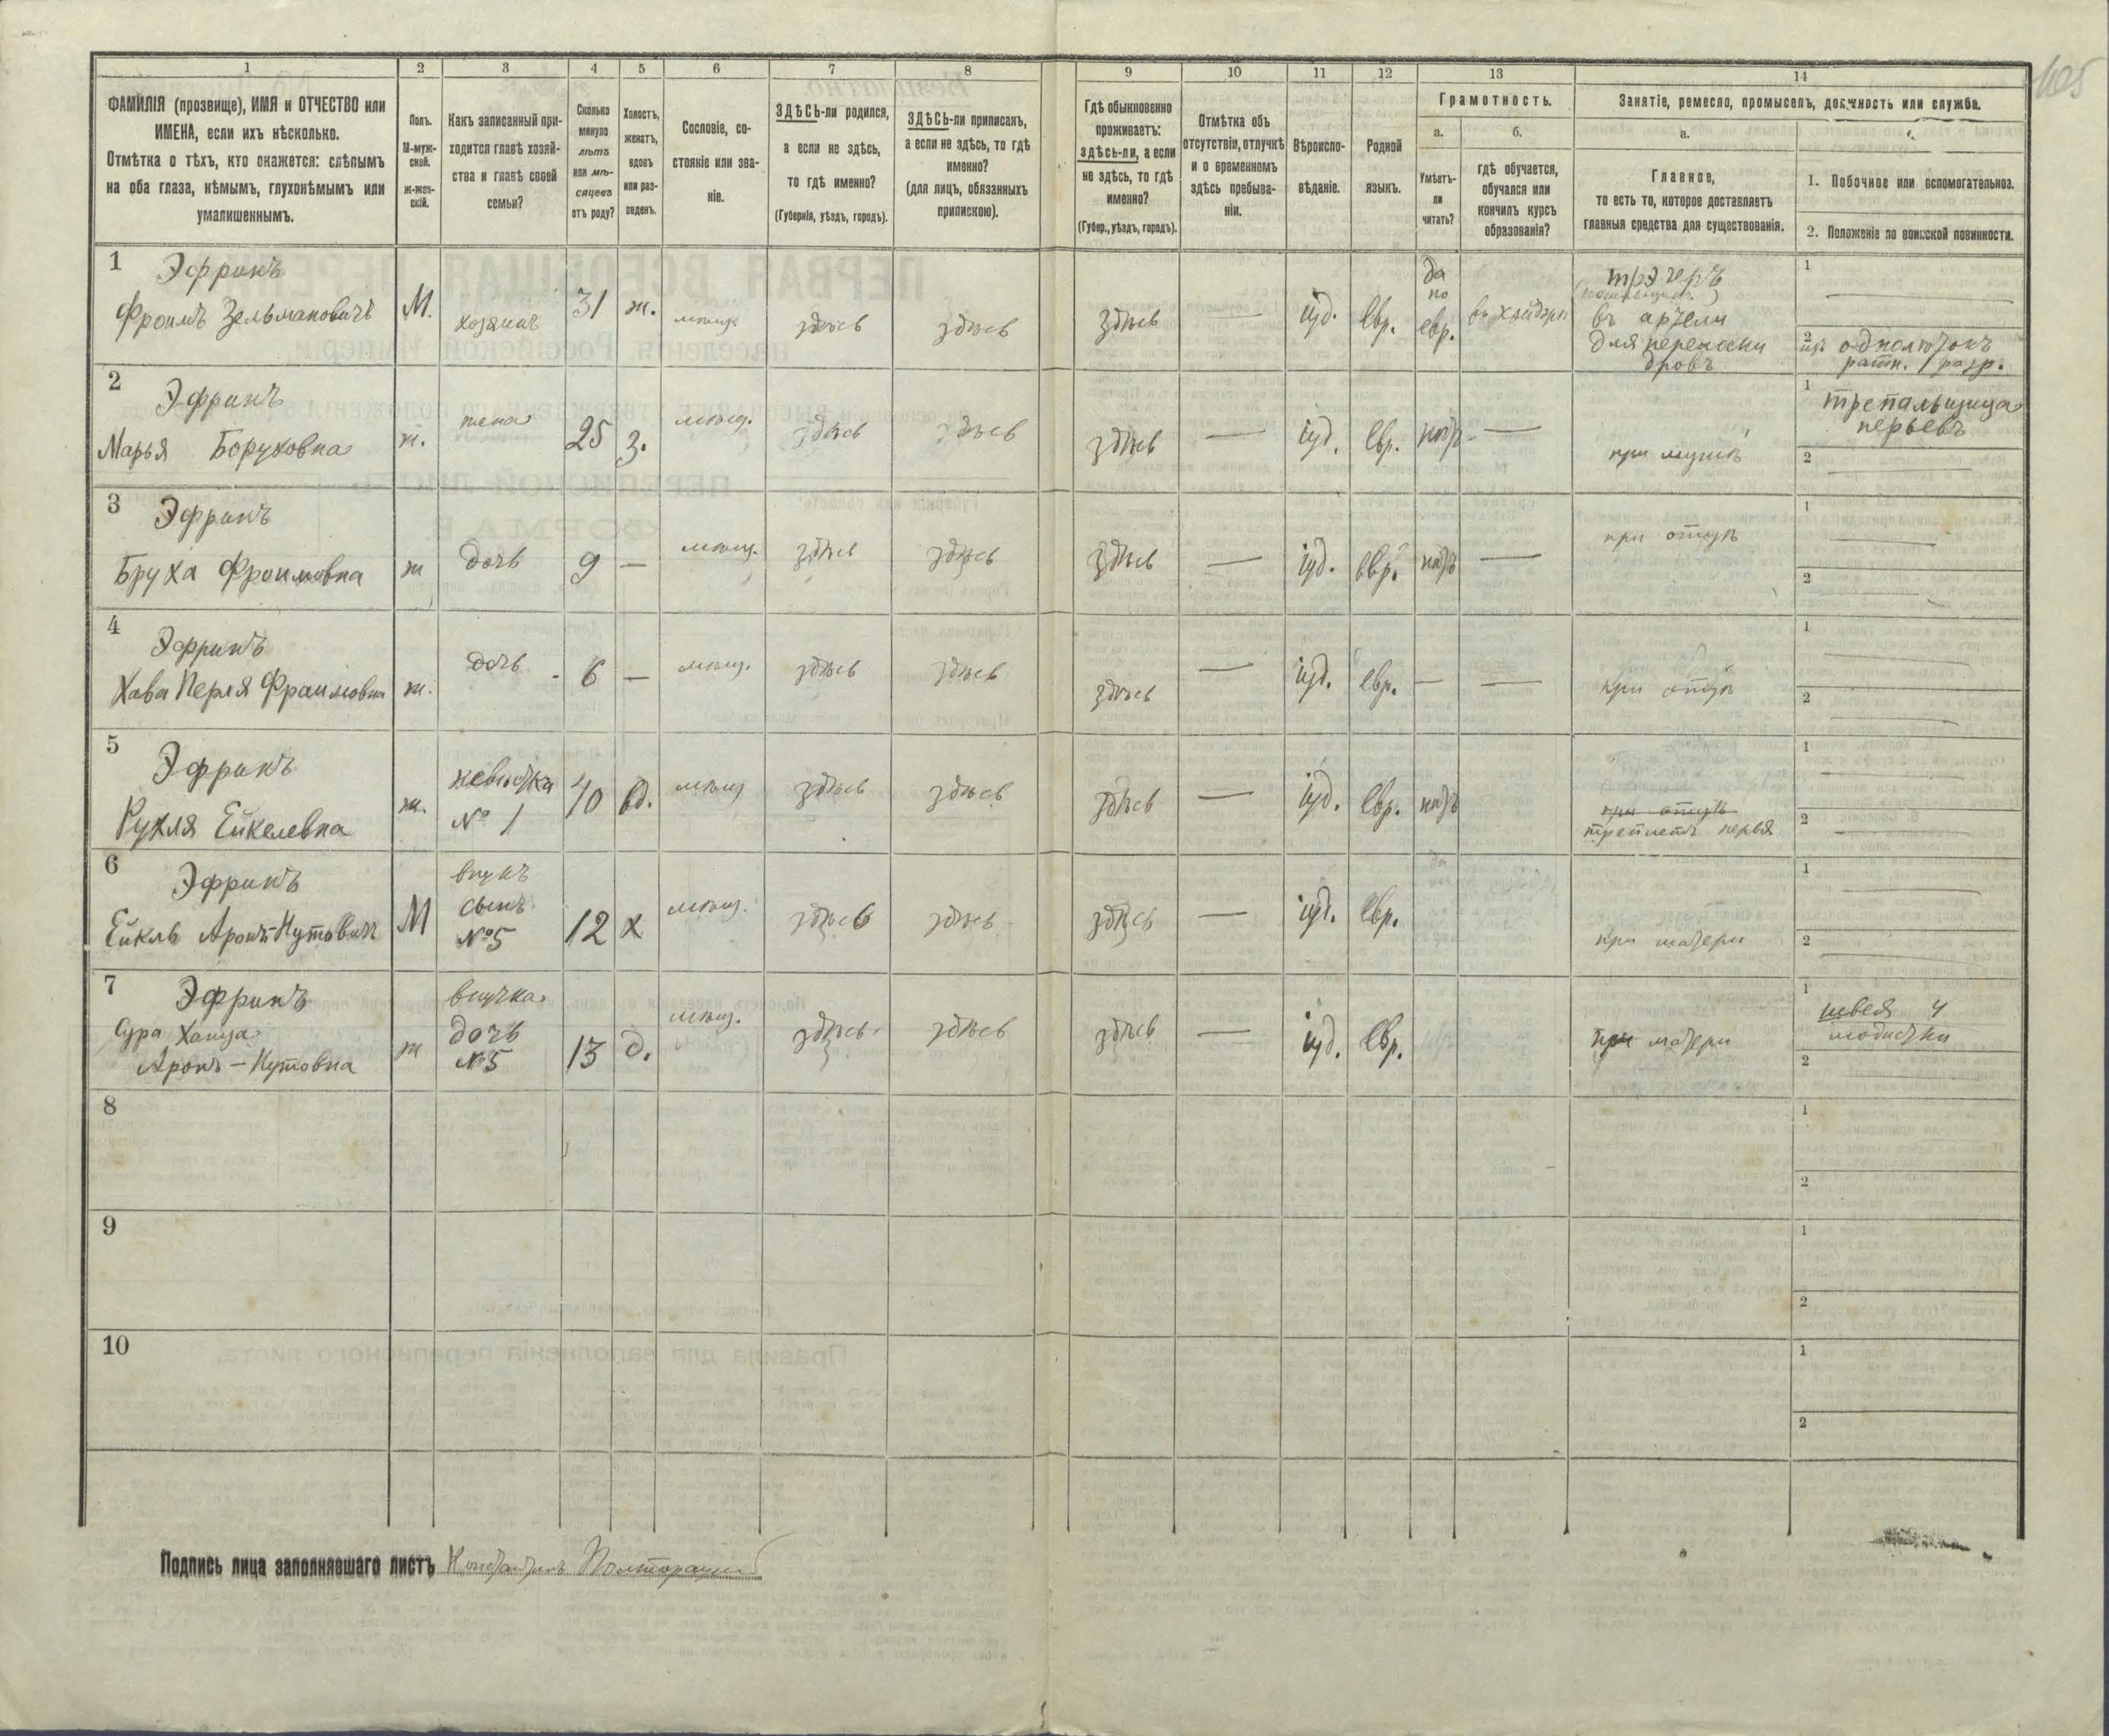 1 2 3 4 5 6 7 8 9 10 11 12 13 14
105
ФАМИЛІЯ (прозвище), ИМЯ и ОТЧЕСТВО или
ИМЕНА, если ихъ нѣсколько.
Отмѣтка о тѣхъ, кто окажется: слѣпымъ
на оба глаза, нѣмымъ, глухонѣмымъ или
умалишеннымъ.
Полъ.
М-муж-
ской.
ж-жен-
скій.
Какъ записанный при-
ходится главѣ хозяй-
ства и главѣ своей
семьи?
Сколько
минуло
лѣтъ
или мѣ-
сяцевъ
отъ роду?
Холостъ,
женатъ,
вдовъ
или раз-
веденъ.
Сословіе, со-
стояніе или зва-
ніе.
ЗДѢСЬ-ли родился,
а если не здѣсь,
то гдѣ именно?
(Губернія, уѣздъ, городъ).
ЗДѢСЬ-ли приписанъ,
а если не здѣсь, то гдѣ
именно?
(для лицъ, обязанныхъ
припискою).
Гдѣ обыкновенно
проживаетъ:
здѣсь-ли, а если
не здѣсь, то гдѣ
именно?
(Губер., уѣздъ, городъ).
Отмѣтка объ
отсутствіи, отлучкѣ
и о временномъ
здѣсь пребыва-
ніи.
Вѣроиспо-
вѣданіе.
Родной
языкъ.
Грамотность.
а.
Умѣетъ-
ли
читать?
б.
гдѣ обучается,
обучался или
кончилъ курсъ
образованія?
Занятіе, ремесло, промыселъ, должность или служба.
а.
Главное,
то есть то, которое доставляетъ
главныя средства для существованія.
1. Побочное или вспомогательное.
2. Положеніе по воинской повинности.
1 Эфринъ
Фроимъ Зельмановичъ
М.
хозяинъ
31
ж.
мѣщ.
здѣсь
здѣсь
здѣсь
—
іуд.
евр.
да
по
евр.
въ хейдерѣ
въ артели
для переноски
дровъ
1 —
2
ратн. 1 разр.
2 Эфринъ
Марья Боруховна
ж.
жена
25
з.
мѣщ.
здѣсь
здѣсь
здѣсь
—
іуд.
евр.
нѣтъ
—
при мужѣ
1 трепальщица
перьевъ
2 —
3 Эфринъ
Бруха Фроимовна
ж
дочь
9
—
мѣщ.
здѣсь
здѣсь
здѣсь
—
іуд.
евр.
нѣтъ
—
при отцѣ
1 —
2 —
4 Эфринъ
Хава Перля Фроимовна
ж.
дочь
6
—
мѣщ.
здѣсь
здѣсь
здѣсь
—
іуд.
евр.
—
—
при отцѣ
1 —
2 —
5 Эфринъ
Рухля Ейкелевна
ж.
невѣстка
№ 1
40
вд.
мѣщ
здѣсь
здѣсь
здѣсь
—
іуд.
евр.
нѣтъ
при отцѣ
треплетъ перья
1 —
2 —
6 Эфринъ
Ейкль Аронъ-Нутовичъ
М
внукъ
сынъ
№5
12
х
мѣщ.
здѣсь
здѣсь
здѣсь
—
іуд.
евр.
да
при матери
1 —
2 —
7 Эфринъ
Сура Хаища
Аронъ-Нутовна
ж
внучка
дочь
№5
13
д.
мѣщ.
здѣсь
здѣсь
здѣсь
—
іуд.
евр.
при матери
1 швея у
модистки
2 —
8
1
2
9
1
2
10
1
2
Подпись лица заполнявшаго листъ Константинъ Полторацкій